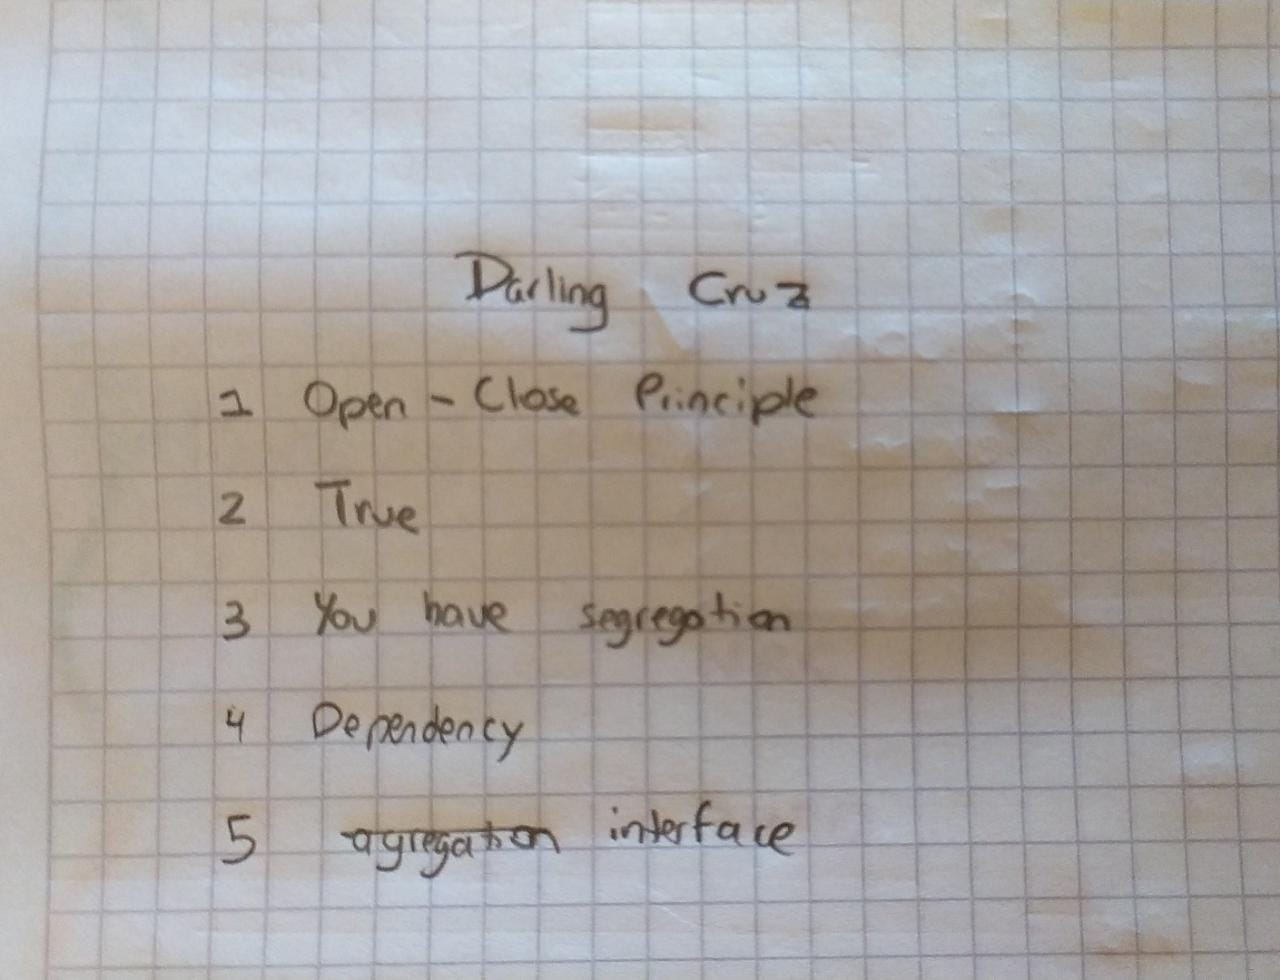 Darling Cruz
1 Open - Close Principle
2 True
3 You have segregation
4 Dependency
5 agregation interface